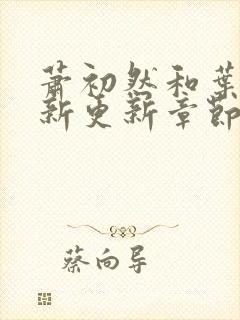 萧初然和葉
新更新章節
蔡向导